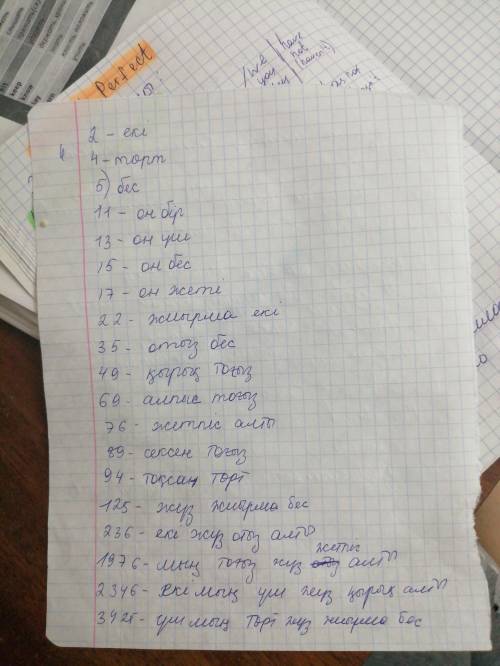 Perfect
I/we
you
have
not
2 - екі
4 - торт
5) бес
11 - он бір
13 - он үш
15 - он бес
17 - он жеті
22 - жиырма екі
35 - отыз бес
49 - қырық тоғыз
69 - алпыс тоғыз
76 - жетпіс алты
89 - сексен тоғыз
94 - тоқсан торт
125 - жүз жиырма бес
236 - екі жүз отыз алты
жетпіс
1976 - мың тоғыз жүз отыз алты
2346 - екі мың үш жүз қырық алты
3425 - үш мың торт жүз жиырма бес